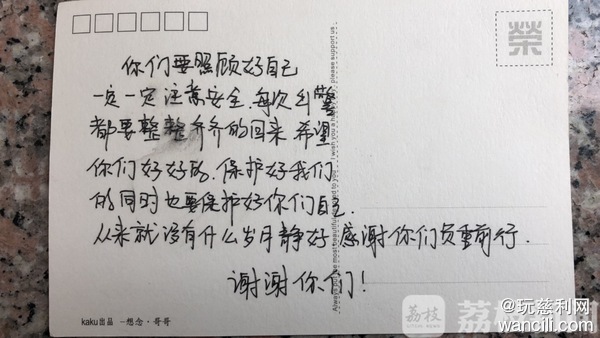 你们要照顾好自己
一定一定注意安全.每次出警
都要整整齐齐的回来 希望
你们好好的.保护好我们
的同时也要保护好你们自己.
从来就没有什么岁月静好 感谢你们负重前行.
谢谢你们!
榮
please support us
kaku出品 －想念·哥哥
荔枝
荔枝新闻
@玩慈利网
wancili.com